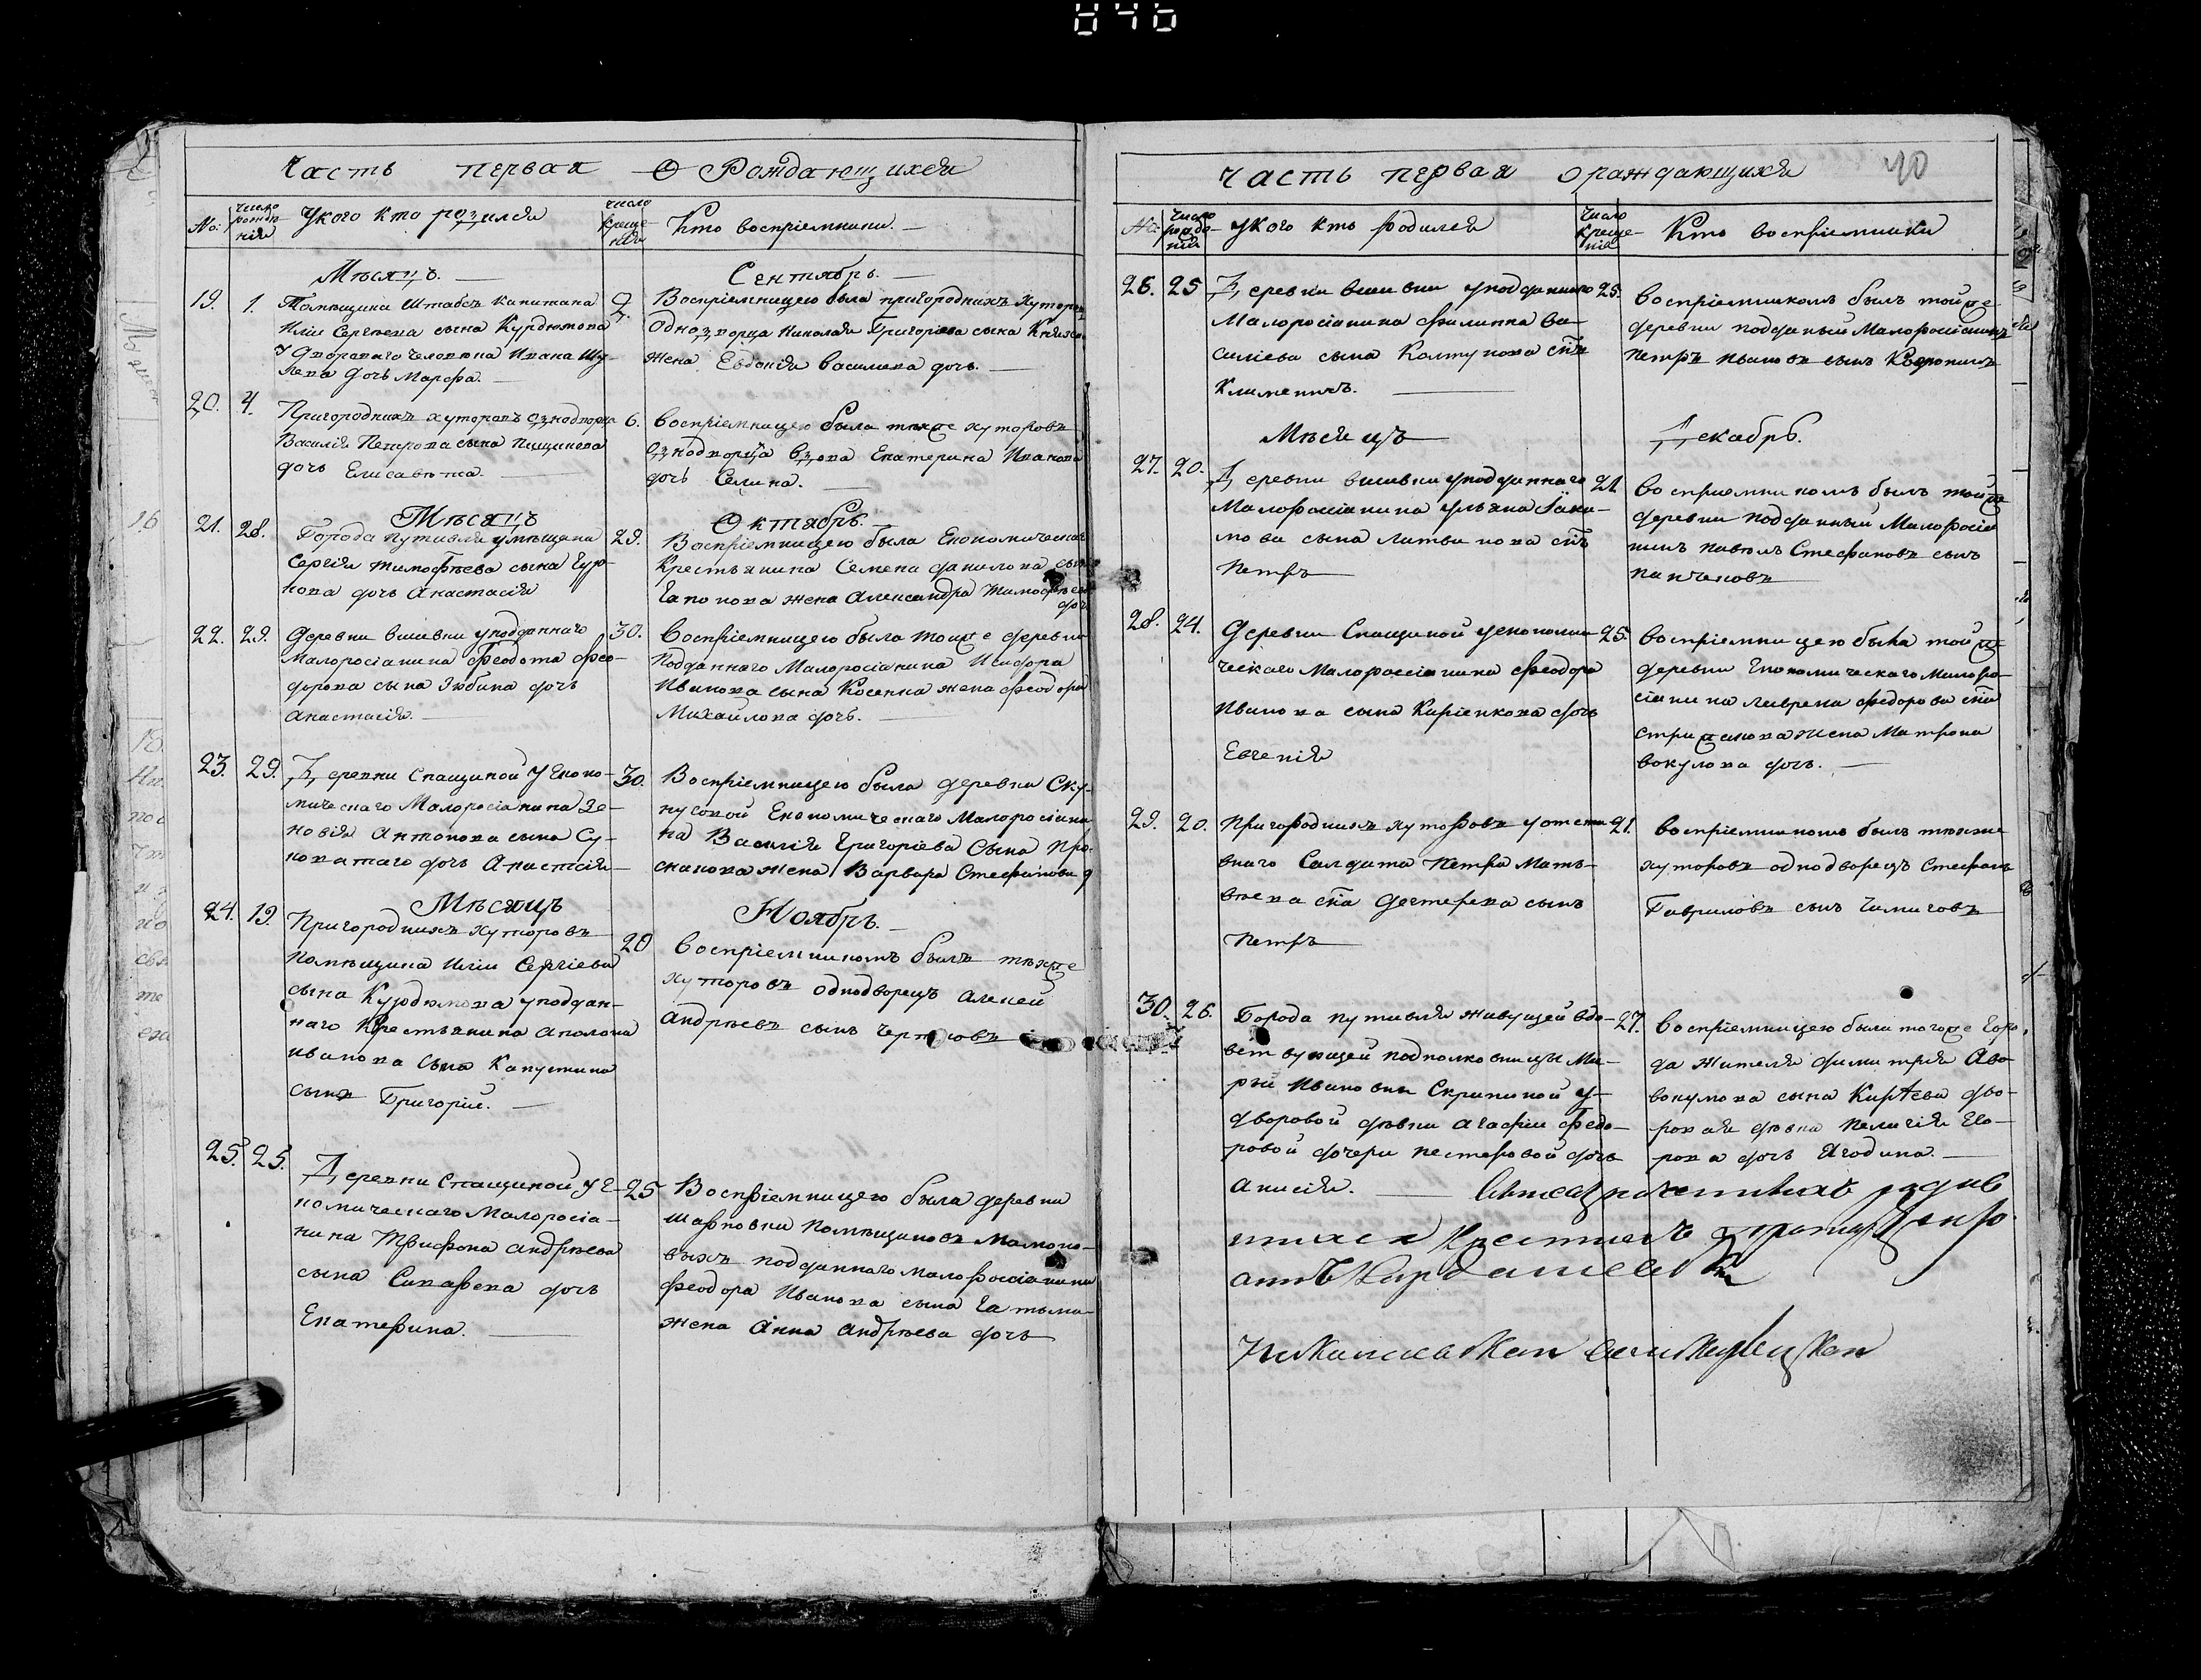 Часть первая О Рождающихся
No:
число рождения
У кого кто родился
число крещения
Кто восприемники.
Мѣсяцъ.
Сентябрь.
19. 1.
Помѣщика Штабсъ капитана
Иліи Сергѣева сына Курдюмова
У дворового человѣка Ивана
дочь Марфа.
2.
Восприемницею была пригородныхъ хуторовъ
Однодворца Николая Григорьева сына
жена Евдокія Васильева дочь.
20. 4.
Пригородныхъ хуторовъ однодворца
Василія Петрова сына
дочь Елисавета.
6.
восприемницею была тѣхъ же хуторовъ
однодворца вдова Екатерина Иванова
дочь Селина.
Мѣсяцъ
Октябрь.
21. 28.
Города Путивля у мѣщанина
Сергія Тимофѣева сына Гур-
нова дочь Анастасія
29.
Восприемницею была Економическаго
крестьянина Семена Данилова сына
Гапонова жена Александра Тимофѣева
дочь
22. 29.
Деревни вшивки у подданнаго
малоросіанина Феодота Фео-
дорова сына Зюбина дочь
Анастасія.
30.
восприемницею была тойже деревни
подданнаго Малоросіанина Исидора
Иванова сына Косенка жена Феодора
Михайлова дочь.
23. 29.
Деревни Спащиной у Еконо-
мическаго Малоросіанина Зе-
новія Антонова сына Су-
ховатаго дочь Анастасія
30.
Восприемницею была деревни Ску-
нусовой Економическаго Малоросіани-
на Василія Григоріева Сына Про-
скакова жена Варвара Стефанова д
Мѣсяцъ
Ноябрь.
24. 19.
Пригородныхъ хуторовъ
помѣщика Иліи Сергіева
сына Курдюмова у поддан-
наго Крестьянина Аполона
Иванова Сына Капустина
сынъ Григорій.
20
восприемникомъ былъ тѣхже
хуторовъ однодворецъ Алексей
Андрѣевъ сынъ
25. 25.
Деревни Спащиной у Е-
номическаго Малоросіа-
нина Трифона Андрѣева
сына Сикарева дочь
Екатерина.
25
Восприемницею была деревни
Шарповки помѣщиковъ Мамоно-
выхъ подданнаго малоросіанина
Феодора Иванова сына
жена Анна Андрѣева дочь
часть первая ораждающихся
40
No:
число рожденія
У кого кто родился
Число крещенія
Кто восприемники
26. 25
Деревни вшивки у подданнаго
Малоросіанина Филиппа Ва-
силіева сына Колтунова сынъ
Климентъ.
25.
восприемникомъ былъ тойже
деревни подданый Малоросіанинъ
Петръ Ивановъ сынъ
Мѣсяцъ
Декабрь.
27. 20.
Деревни вшивки у подданнаго
Малоросіанина Ульяна Іаки-
мова сына Литвинова сынъ
Петръ
21.
восприемникомъ былъ тойже
деревни подданный Малоросія-
нинъ Павелъ Стефановъ сынъ
Панченовъ
28. 24.
Деревни Спащиной у економи-
ческаго Малоросіанина Феодора
Иванова сына Киріенкова дочь
Евгенія
25.
восприемницею была тойже
деревни Економическаго Малоро-
сіанина Лаврена Федорова сына
жена Матрона
вокулова дочь.
29. 20.
Пригородныхъ хуторовъ у отста-
внаго Салдата Петра Мать-
вѣева сына Дегтерева сынъ
Петръ
21.
восприемникомъ былъ тѣхже
хуторовъ однодворецъ Стефанъ
Гавриловъ сынъ Чилиговъ
30. 26.
Города путивля живущей вдо-
вствующей подполковницы Ма-
ріи Ивановны Скрипиной у
дворовой дѣвки Агафіи Федо-
ровой дочери Нестеровой дочь
Анисія.
27.
восприемницею была тогоже Горо-
да жителя Димитрія Ава-
вокумова сына Киріева дво-
ровая дѣвка Пелагія Его-
рова дочь Ягодина.